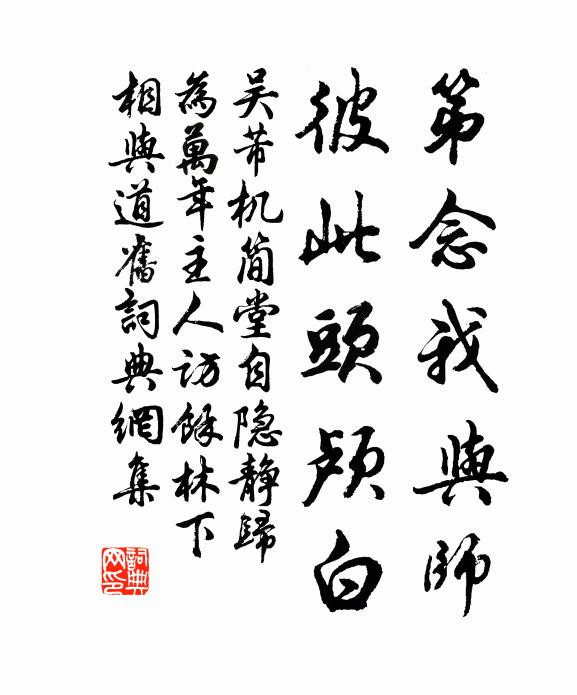 第念我與師
彼此頭顱白
吴芾机简堂自隐静歸
為萬年主人访餘林下
相與道舊詞典網集
詞典网印